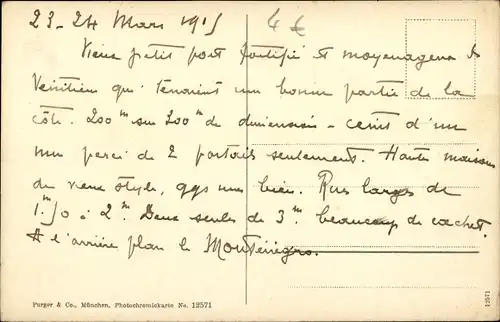 23-24 Mars 1915 4 €
Vieux petit port fortifié et moyenageux de
Vénitiens qui tenaient une bonne partie de la
côte. 200 m sur 300 m de dimension - ceint d'un
mur percé de 2 portails seulement. Hautes maisons
de vieux style, qqs unes bien. Rues larges de
1.m50 à 2.m Deux seules de 3m. beaucoup de cachet.
A l'arrière plan le Monténégro.
Purger & Co., München, Photochromiekarte No. 12571
12571